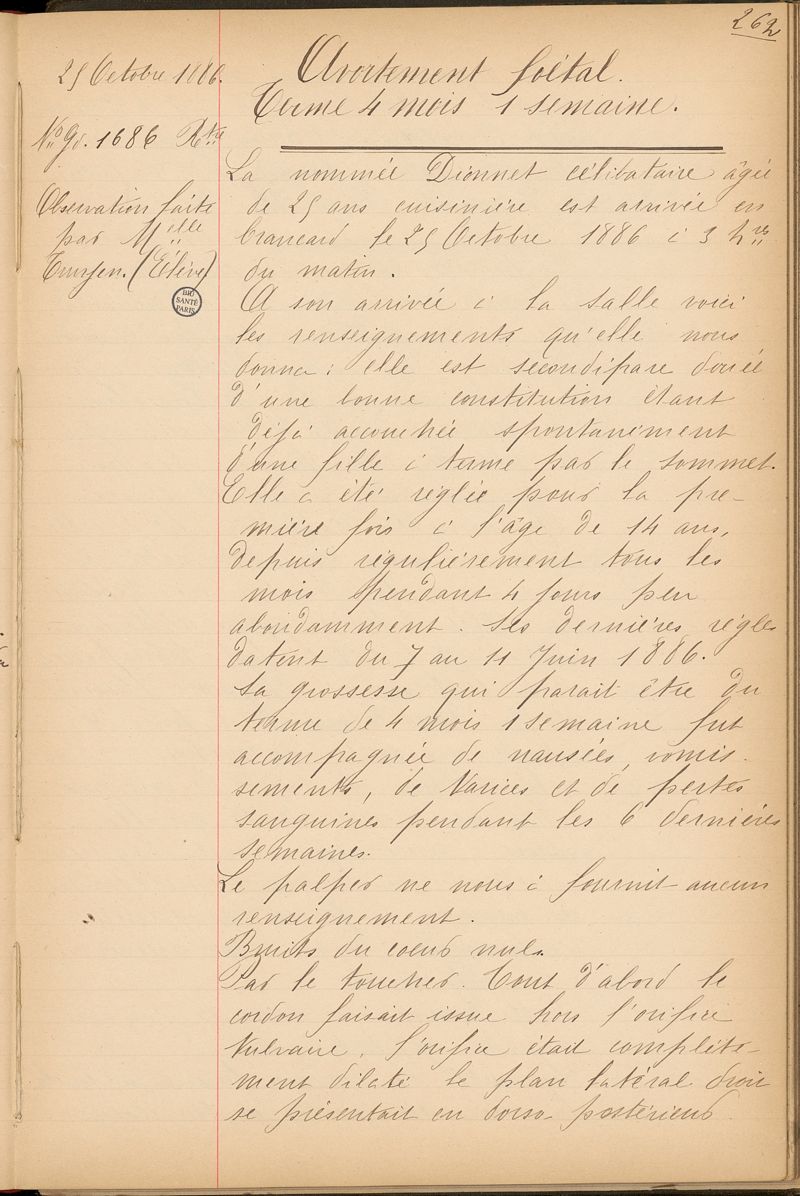 262
25 Octobre 1886.
Avortement foetal.
Terme 4 mois 1 semaine.
No Gl. 1686 Rtre
Observation faite
par Melle
(Élève)
BIU
SANTÉ
PARIS
La nommée Dionnet célibataire âgée
de 25 ans cuisinière est arrivée en
brancard le 25 Octobre 1886 à 3 hres
du matin.
A son arrivée à la salle voici
les renseignements qu'elle nous
donna : elle est secondipare douée
d'une bonne constitution étant
déjà accouchée spontanément
d'une fille à terme par le sommet.
Elle a été réglée pour la pre-
mière fois à l'âge de 14 ans,
depuis régulièrement tous les
mois pendant 4 jours peu
abondamment. Ses dernières règles
datent du 7 au 11 Juin 1886.
Sa grossesse qui parait être du
terme de 4 mois 1 semaine fut
accompagnée de nausées, vomis-
sements, de Varices et de pertes
sanguines pendant les 6 dernières
semaines.
Le palper ne nous à fournit aucun
renseignement.
Bruits du coeur nuls.
Par le toucher. Tout d'abord le
cordon faisait issue hors l'orifice
Vulvaire, l'orifice était complète-
ment dilaté le plan latéral droit
se présentait en dorso postérieur